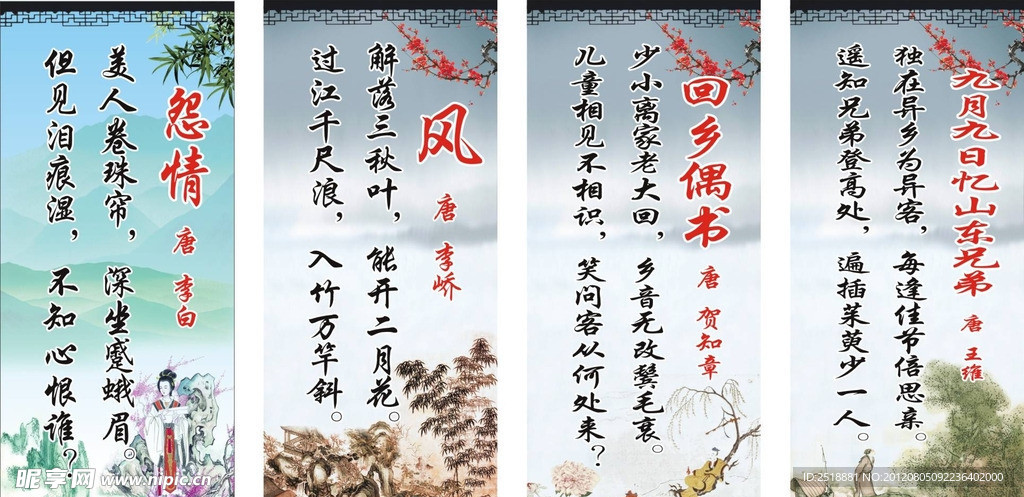 怨情
唐 李白
美人卷珠帘，深坐蹙蛾眉。
但见泪痕湿，不知心恨谁？
风
唐 李峤
解落三秋叶，能开二月花。
过江千尺浪，入竹万竿斜。
回乡偶书
唐 贺知章
少小离家老大回，乡音无改鬓毛衰。
儿童相见不相识，笑问客从何处来？
九月九日忆山东兄弟
唐 王维
独在异乡为异客，每逢佳节倍思亲。
遥知兄弟登高处，遍插茱萸少一人。
昵享网 www.nipic.cn
ID:2518881 NO:20120805092236402000